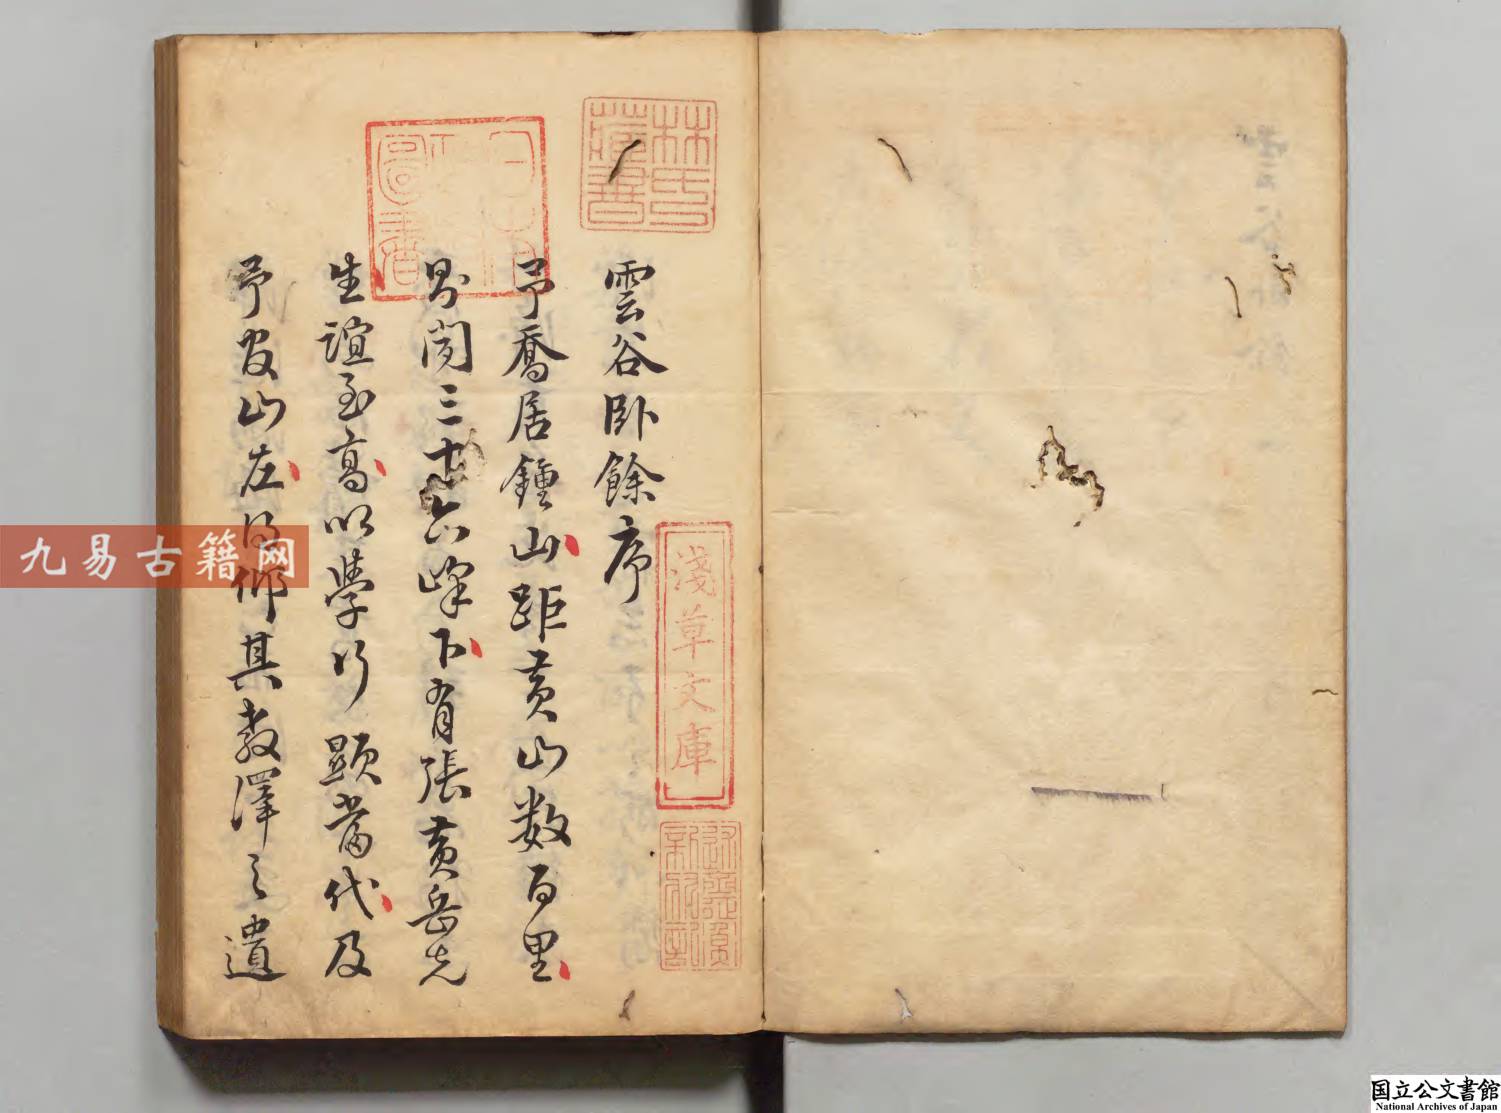 雲谷卧餘序
予喬居鍾山距黄山数百里
閒三十六峰下有張黄岳先
生誼至髙以學行顯當代及
予官山左得仰其教澤之遺
林氏藏書
日本政府圖書
淺草文庫
九易古籍网
国立公文書館
National Archives of Japan